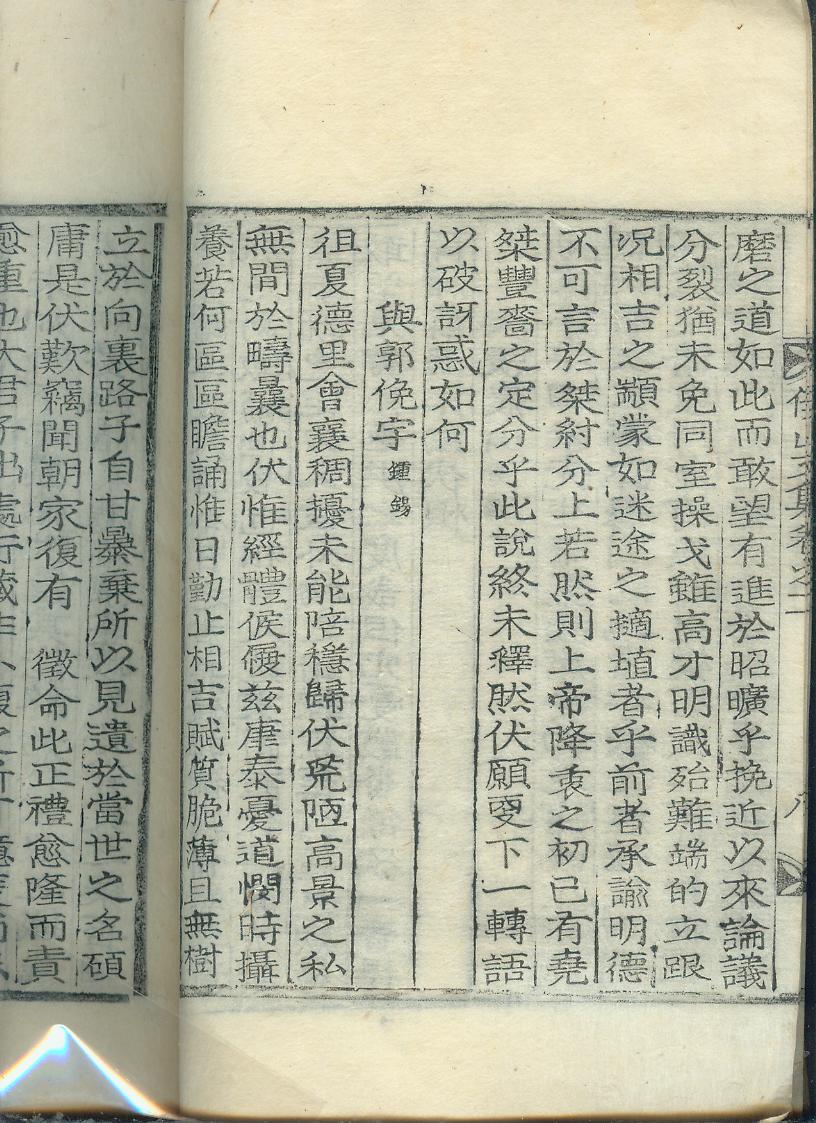 磨之道如此而敢望有進於昭曠乎挽近以來論議
分裂猶未免同室操戈雖高才明識殆難端的立跟
况相吉之顓蒙如迷途之擿埴者乎前者承諭明德
不可言於桀紂分上若然則上帝降衷之初已有堯
桀豐嗇之定分乎此說終未釋然伏願更下一轉語
以破訝惑如何
與郭俛宇 鍾錫
徂夏德里會襄稠擾未能陪穩歸伏荒陋高景之私
無間於疇曩也伏惟經體候㒇玆康泰憂道憫時攝
養若何區區瞻誦惟日勤止相吉賦質脆薄且無樹
立於向裏路子自甘暴棄所以見遺於當世之名碩
庸是伏歎竊聞朝家復有 徵命此正禮愈隆而責
愈重也大君子出處行藏